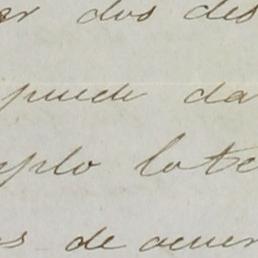 er dos des
puede da
plo lote
os de acuer